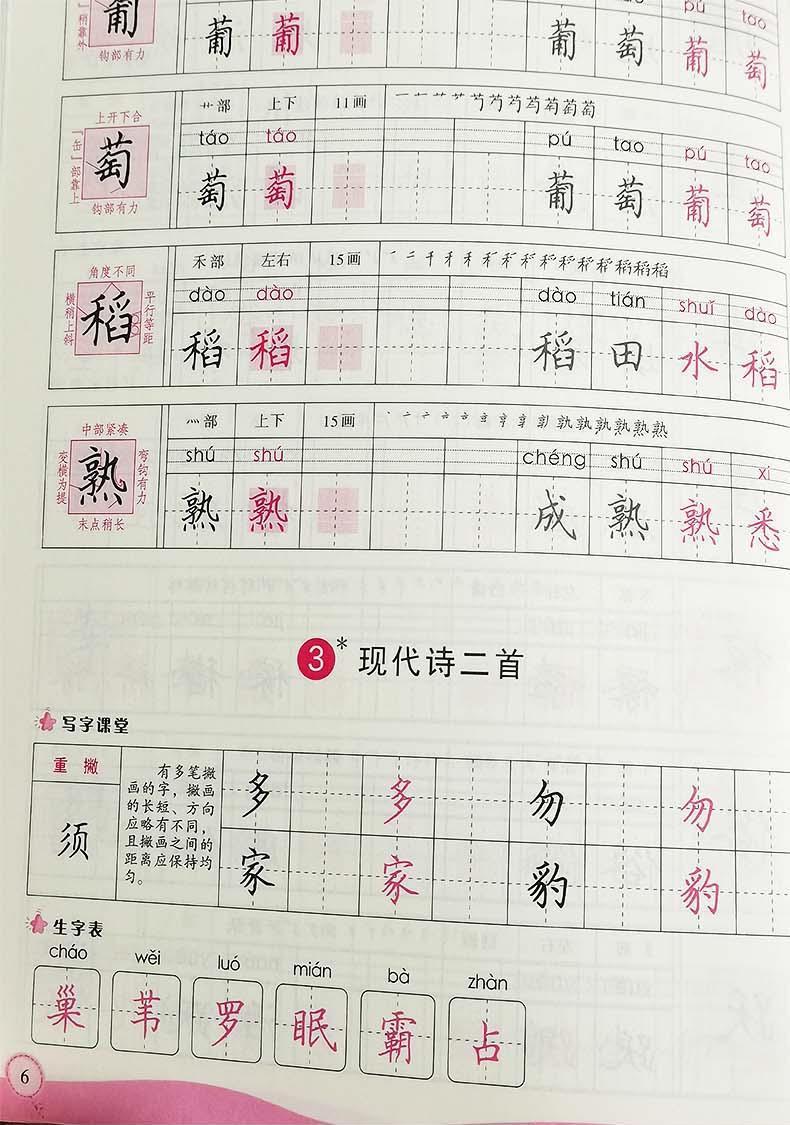 葡
」稍靠外
钩部有力
葡 葡 葡 萄 葡 萄
pú tao
上开下合
「缶」部靠上
萄
钩部有力
艹部 上下 11画
táo táo pú tao pú tao
萄 萄 葡 萄 葡 萄
角度不同
横稍上斜
稻
平行等距
禾部 左右 15画
dào dào dào tián shuǐ dào
稻 稻 稻 田 水 稻
中部紧凑
变横为提
熟
弯钩有力
末点稍长
灬部 上下 15画
shú shú chéng shú shú xi
熟 熟 成 熟 熟 悉
3* 现代诗二首
写字课堂
重撇
须
有多笔撇
画的字，撇画
的长短、方向
应略有不同，
且撇画之间的
距离应保持均
匀。
多 多 勿 勿
家 家 豹 豹
生字表
cháo wěi luó mián bà zhàn
巢 苇 罗 眠 霸 占
6